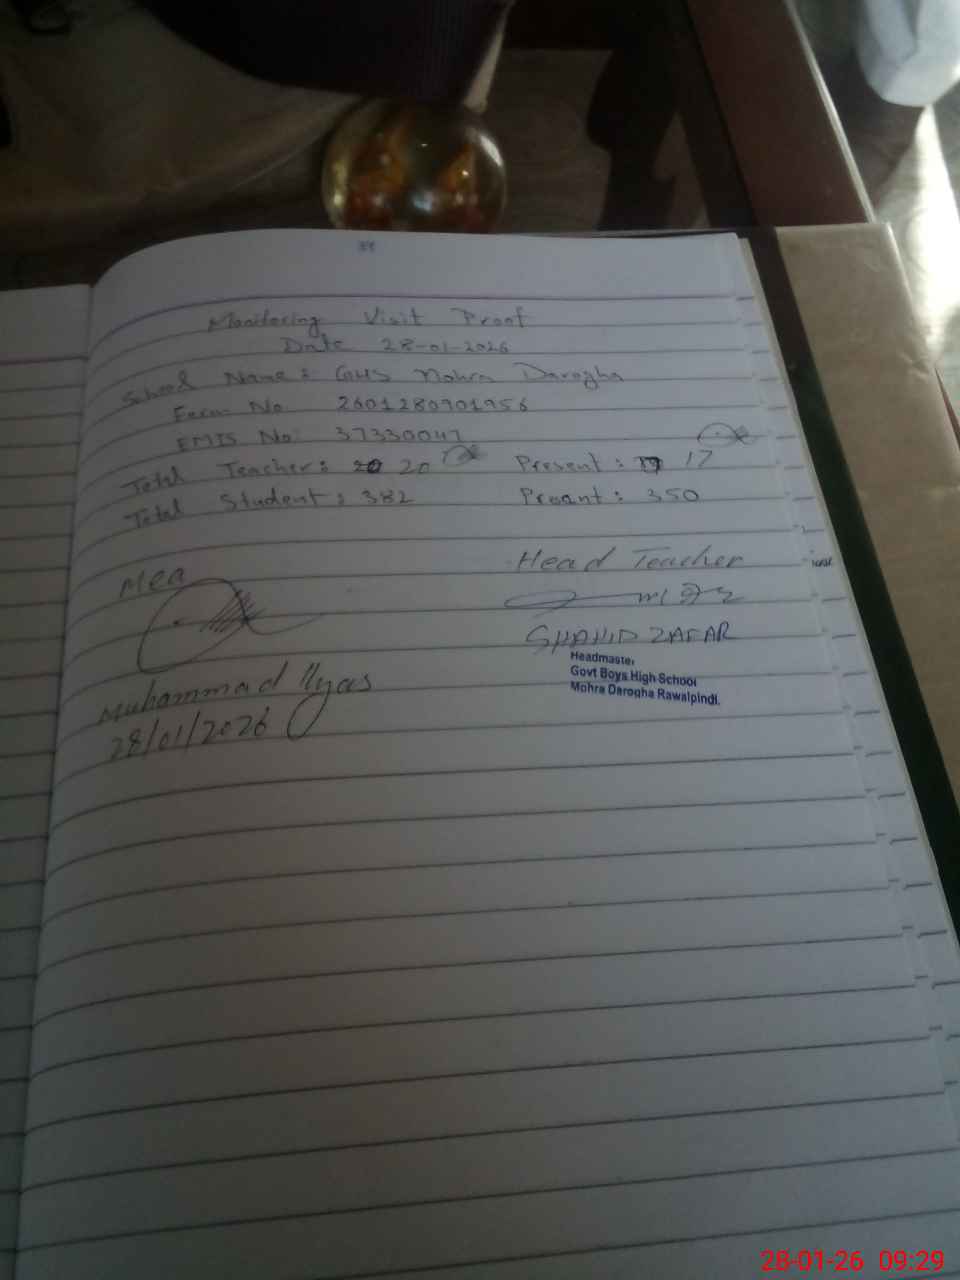 Monitoring Visit Proof
Date 28-01-2026
School Name: GHS Mohra Darogha
Form No. 2601280901956
EMIS No: 37330047
Total Teacher: 20 20 Present: 17 17
Total Student: 382 Presnt: 350
Mea Head Teacher
SHAHID ZAFAR
Headmaster
Govt Boys High School
Mohra Darogha Rawalpindi.
Muhammad Ilyas
28/01/2026
28-01-26 09:29